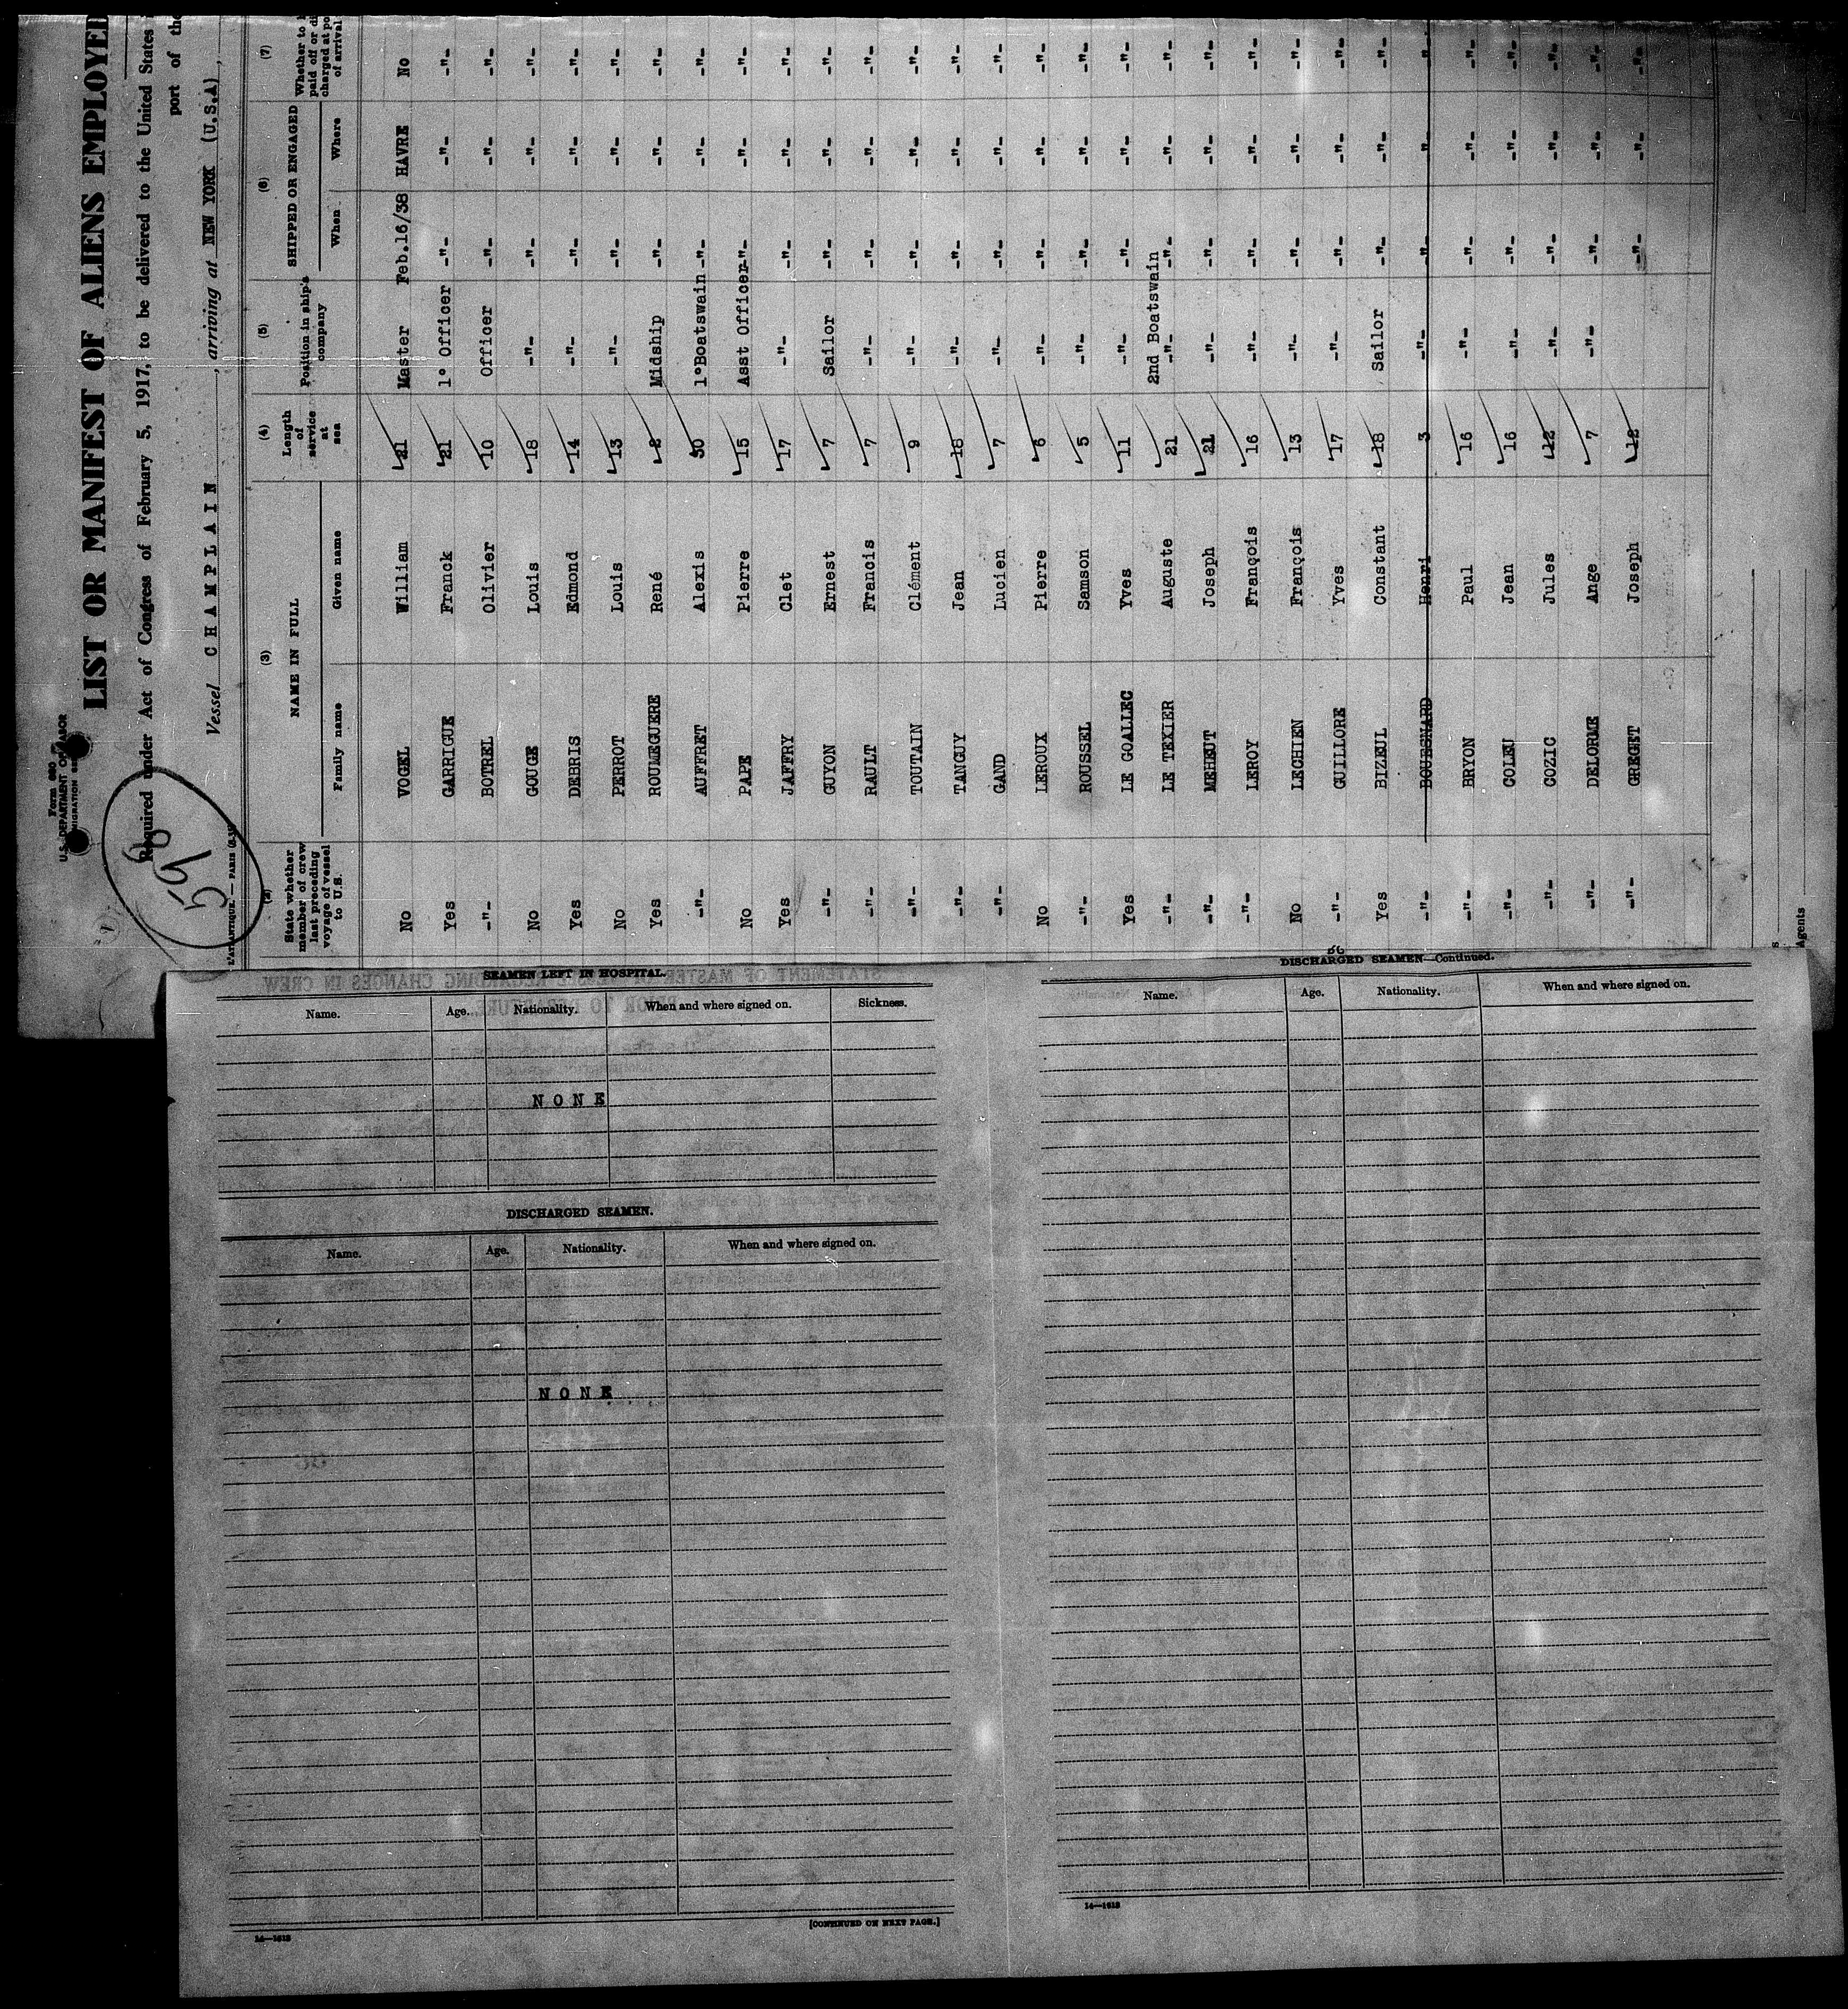 Form 680
U.S. DEPARTMENT OF LABOR
LIST OR MANIFEST OF ALIENS EMPLOYED
Required under Act of Congress of February 5, 1917, to be delivered to the United States
port of the
598
Vessel CHAMPLAIN, arriving at NEW YORK (U.S.A),
L'ATLANTIQUE. — PARIS
(2) (3) (4) (5) (6) (7)
State whether member of crew last preceding voyage of vessel to U.S. NAME IN FULL Length of service at sea Position in ship's company SHIPPED OR ENGAGED Whether to
paid off or di
charged at po
of arrival
Family name Given name When Where
No VOGEL William 21 Master Feb.16/38 HAVRE No
Yes GARRIGUE Franck 21 1° Officer -"- -"- -"-
-"- BOTREL Olivier 10 Officer -"- -"- -"-
No GOUGE Louis 18 -"- -"- -"- -"-
Yes DEBRIS Edmond 14 -"- -"- -"- -"-
No PERROT Louis 13 -"- -"- -"- -"-
Yes ROUMEGUERE René 2 Midship -"- -"- -"-
-"- AUFFRET Alexis 30 1°Boatswain -"- -"- -"-
No PAPE Pierre 15 Asst Officer -"- -"- -"-
Yes JAFFRY Clet 17 -"- -"- -"- -"-
-"- GUYON Ernest 7 Sailor -"- -"- -"-
-"- RAULT Francis 7 -"- -"- -"- -"-
-"- TOUTAIN Clément 9 -"- -"- -"- -"-
-"- TANGUY Jean 18 -"- -"- -"- -"-
-"- GAND Lucien 7 -"- -"- -"- -"-
No LEROUX Pierre 6 -"- -"- -"- -"-
-"- ROUSSEL Samson 5 -"- -"- -"- -"-
Yes LE GOALLEC Yves 11 -"- -"- -"- -"-
-"- LE TEXIER Auguste 21 2nd Boatswain -"- -"- -"- -"-
-"- MEHEUT Joseph 21 -"- -"- -"- -"-
-"- LEROY François 16 -"- -"- -"- -"-
No LECHIEN François 13 -"- -"- -"- -"-
-"- GUILLORE Yves 17 -"- -"- -"- -"-
Yes BIZEUL Constant 18 Sailor -"- -"- -"-
-"- Henri 3 -"- -"- -"- -"-
-"- BRYON Paul 16 -"- -"- -"- -"-
-"- COLEU Jean 16 -"- -"- -"- -"-
-"- COZIC Jules 12 -"- -"- -"- -"-
-"- DELORME Ange 7 -"- -"- -"- -"-
-"- GREGET Joseph 12 -"- -"- -"-
Agents
SEAMEN LEFT IN HOSPITAL.
Name. Age. Nationality. When and where signed on. Sickness.
NONE
DISCHARGED SEAMEN.
Name. Age. Nationality. When and where signed on.
NONE
[CONTINUED ON NEXT PAGE.]
14—1813
DISCHARGED SEAMEN—Continued.
Name. Age. Nationality. When and where signed on.
14—1813